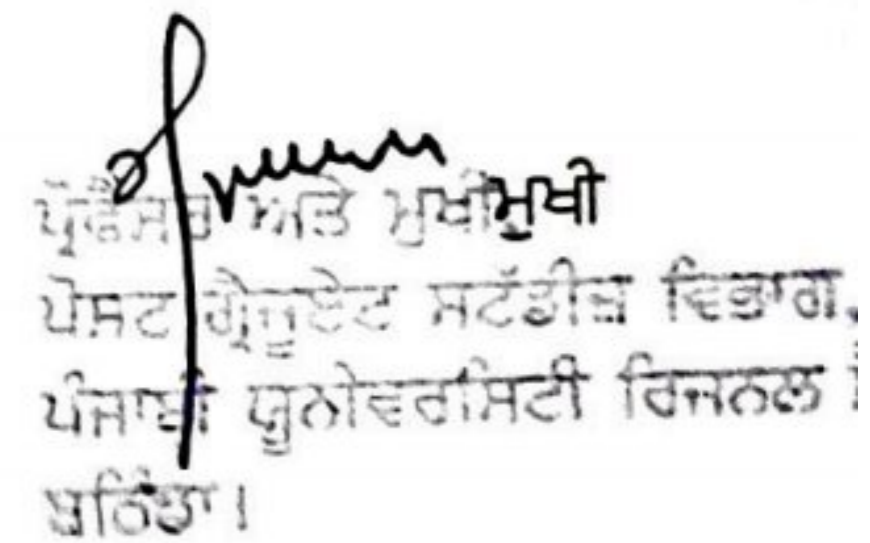 ਪ੍ਰੋਫੈਸਰ ਅਤੇ ਮੁਖੀ ਮੁਖੀ
ਪੋਸਟ ਗ੍ਰੈਜੂਏਟ ਸਟੱਡੀਜ਼ ਵਿਭਾਗ,
ਪੰਜਾਬੀ ਯੂਨੀਵਰਸਿਟੀ ਰਿਜਨਲ
ਬਠਿੰਡਾ।